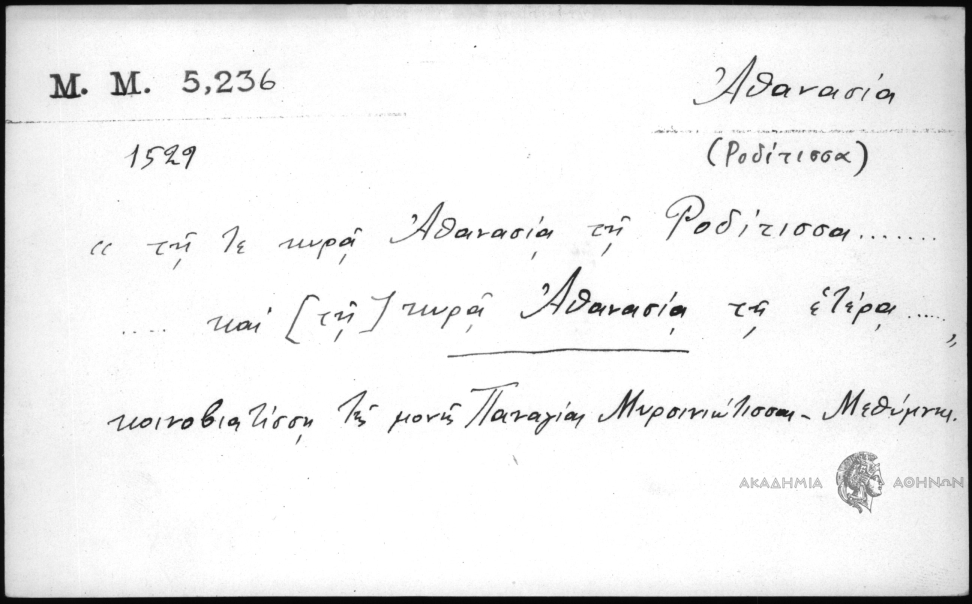 Μ. Μ. 5,236
Ἀθανασία
1529
(Ροδίτισσα)
“ τῇ τε κυρᾷ Ἀθανασίᾳ τῇ Ροδίτισσα.......
..... καὶ [τῇ] κυρᾷ Ἀθανασίᾳ τῇ ἑτέρᾳ ..... „
κοινοβιατίσσῃ τῆς μονῆς Παναγίας Μυρσινιώτισσας - Μεθύμνης.
ΑΚΑΔΗΜΙΑ ΑΘΗΝΩΝ